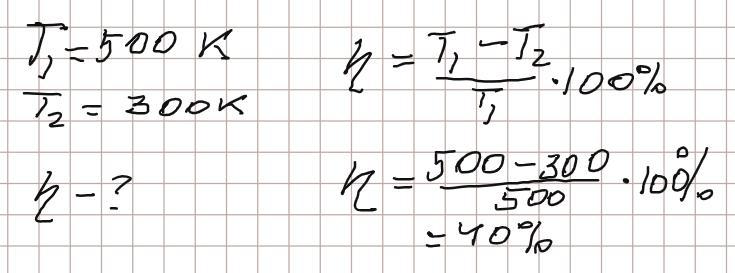 T₁ = 500 K
T₂ = 300 K
η - ?
η = (T₁ - T₂)/T₁ · 100%
η = (500 - 300)/500 · 100%
= 40%